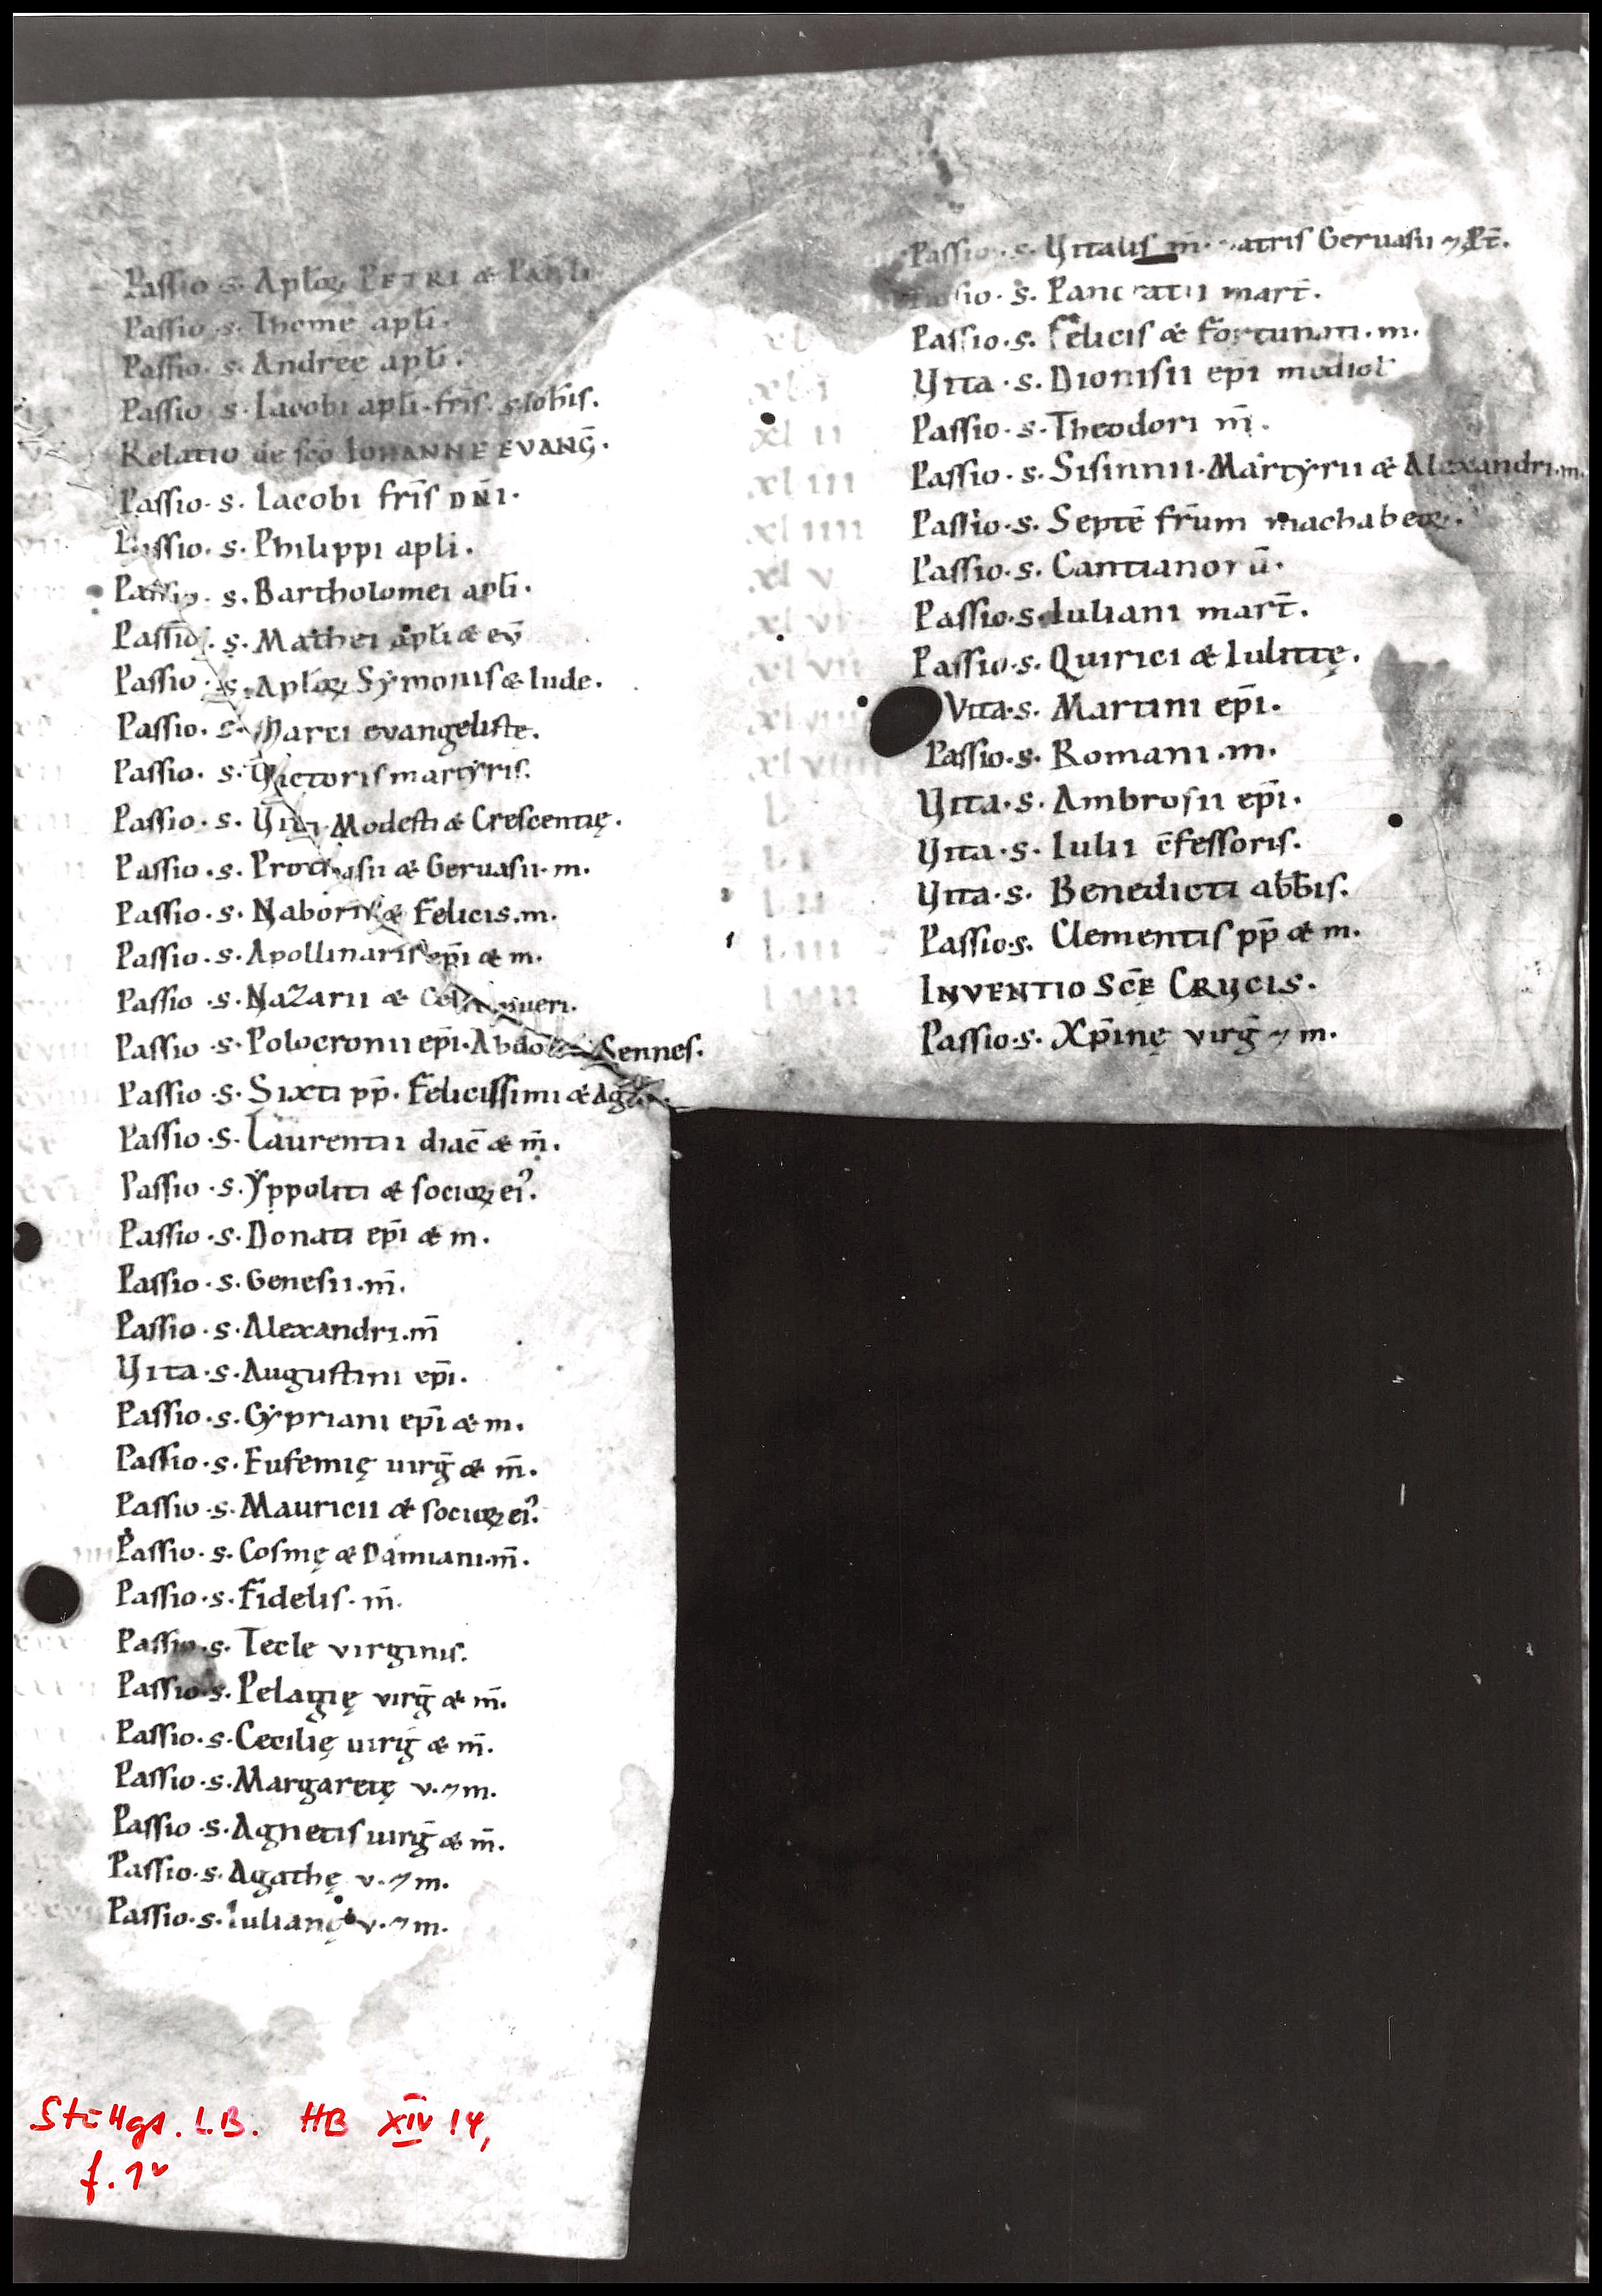 Passio s̄. Aploꝝ PETRI & PAULI.
Passio .s. Thome apłi.
Passio. s. Andree apłi.
Passio .s. Iacobi apłi. fr̄is. s. Ioħis.
Relatio de sc̄o IOHANNE EVANḠ.
Passio. s. Iacobi fr̄is DN̄I.
Passio. s. Philippi apłi.
Passio. s. Bartholomei apłi.
Passio. s. Mathei apłi & ev̄
Passio. s. Apłoꝝ Symonis & Iude.
Passio. s. Marci evangelistę.
Passio. s. Victoris martyris.
Passio. s. Viti. Modesti & Crescentię.
Passio .s. Prothasii & Geruasii. m.
Passio .s. Naboris & Felicis. m.
Passio .s. Apollinaris ep̄i & m.
Passio .s. Nazarii &
Passio .s. Polocronii ep̄i. Abdo Sennes.
Passio .s. Sixti pp̄. Felicissimi & Ag
Passio .s. Laurentii diac̄ & m̄.
Passio .s. Yppoliti & socioꝝ eiꝰ.
Passio .s. Donati ep̄i & m.
Passio .s. Genesii. m̄.
Passio .s. Alexandri. m̄
Vita .s. Augustini ep̄i.
Passio .s. Cypriani ep̄i & m.
Passio .s. Eufemię uirḡ & m̄.
Passio .s. Mauricii & socioꝝ eiꝰ.
Passio. s. Cosmę & Damiani. m̄.
Passio .s. Fidelis. m̄.
Passio. s. Tecle virginis.
Passio. s. Pelagię virḡ & m̄.
Passio. s. Cecilię uirḡ & m̄.
Passio .s. Margaretę v. ⁊ m.
Passio .s. Agnetis uirḡ & m̄.
Passio. s. Agathę v. ⁊ m.
Passio. s. Iulianę v. ⁊ m.
Passio. s. Vitalis m̄. patris Geruasii ⁊ Pt̄.
Passio. s. Pancratii mart̄.
Passio. s. Felicis & Fortunati. m.
xl i Vita .s. Dionisii ep̄i mediol̄
xl ii Passio. s. Theodori m̄.
xl iii Passio .s. Sisinnii. Martyrii & Alexandri. m.
xl iiii Passio. s. Septē fr̄um machabeoꝝ.
xl v Passio. s. Cantianorū.
xl vi Passio. s. Iuliani mart̄.
xl vii Passio. s. Quirici & Iulittę.
xl viii Vita. s. Martini ep̄i.
xl viiii Passio. s. Romani. m.
l Vita. s. Ambrosii ep̄i.
l i Vita. s. Iulii c̄fessoris.
l ii Vita. s. Benedicti abb̄is.
l iii Passio. s. Clementis pp̄ & m.
l iiii INVENTIO SC̄E CRUCIS.
Passio. s. Xp̄inę virḡ ⁊ m.
Stuttgt. L.B. HB XIV 14,
f. 1v